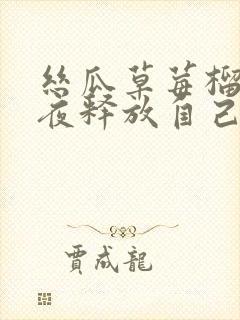 丝瓜草莓榴
夜释放自己
贾成龙